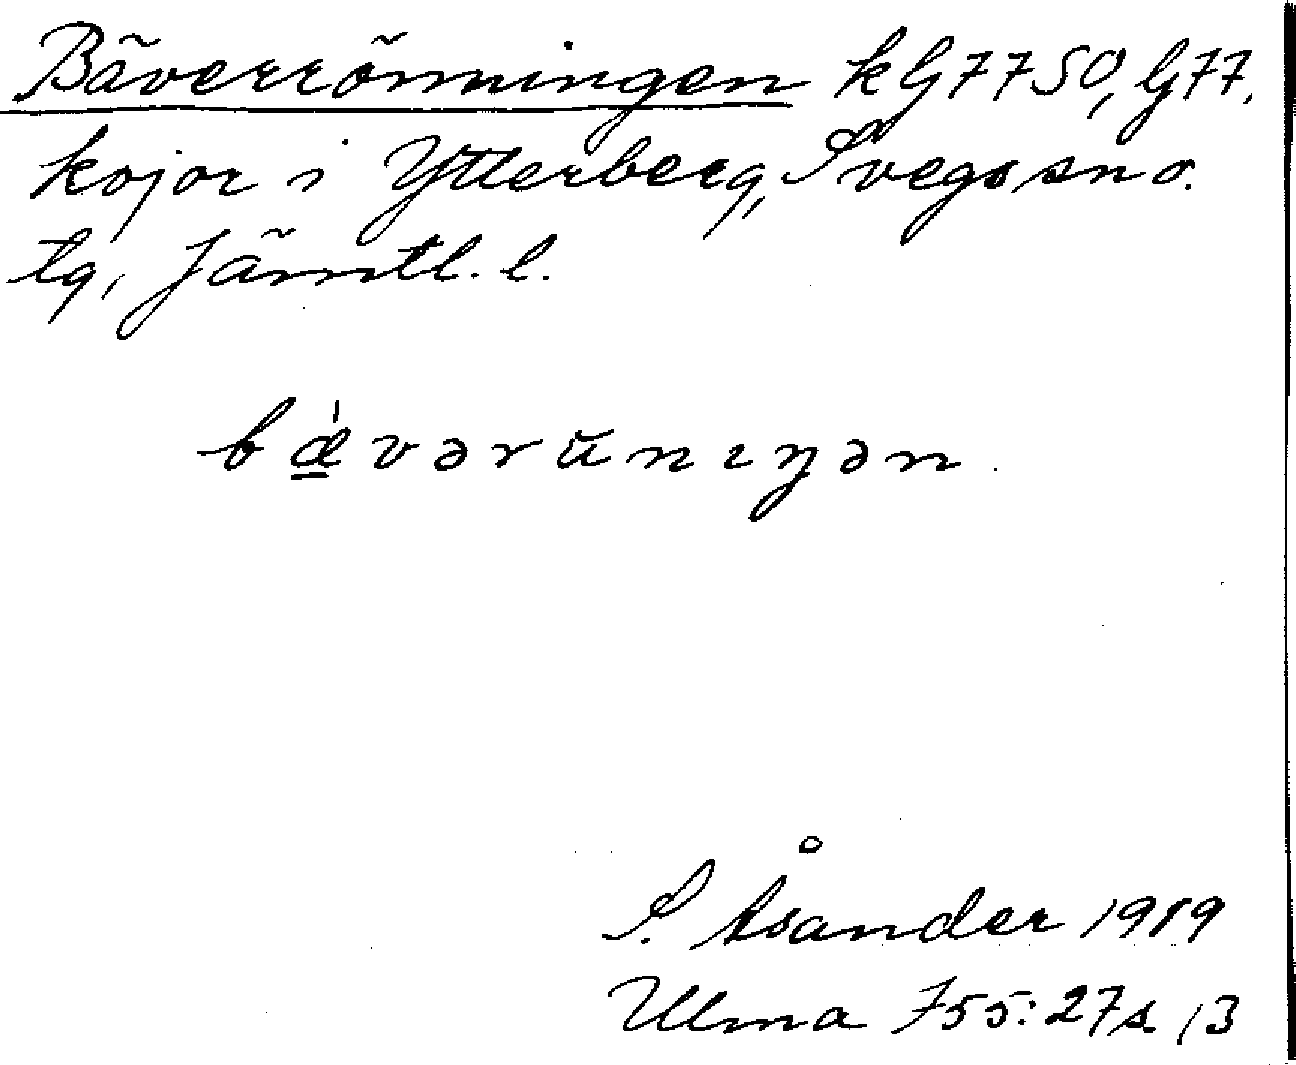 Bäverrönningen kG7750, G77.
kojor i Ytterberg, Svegs sn o.
tg, Jämtl. l.
bæ̲̀vərŭnıŋən
S. Åsander 1989
Ulma 755:27 s. 13